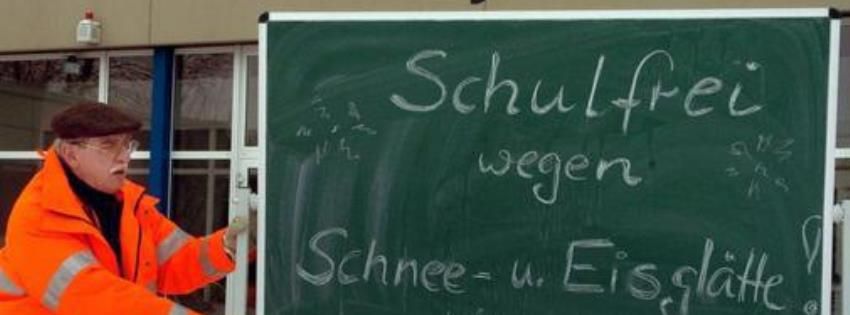 Schulfrei
wegen
Schnee- u. Eisglätte!